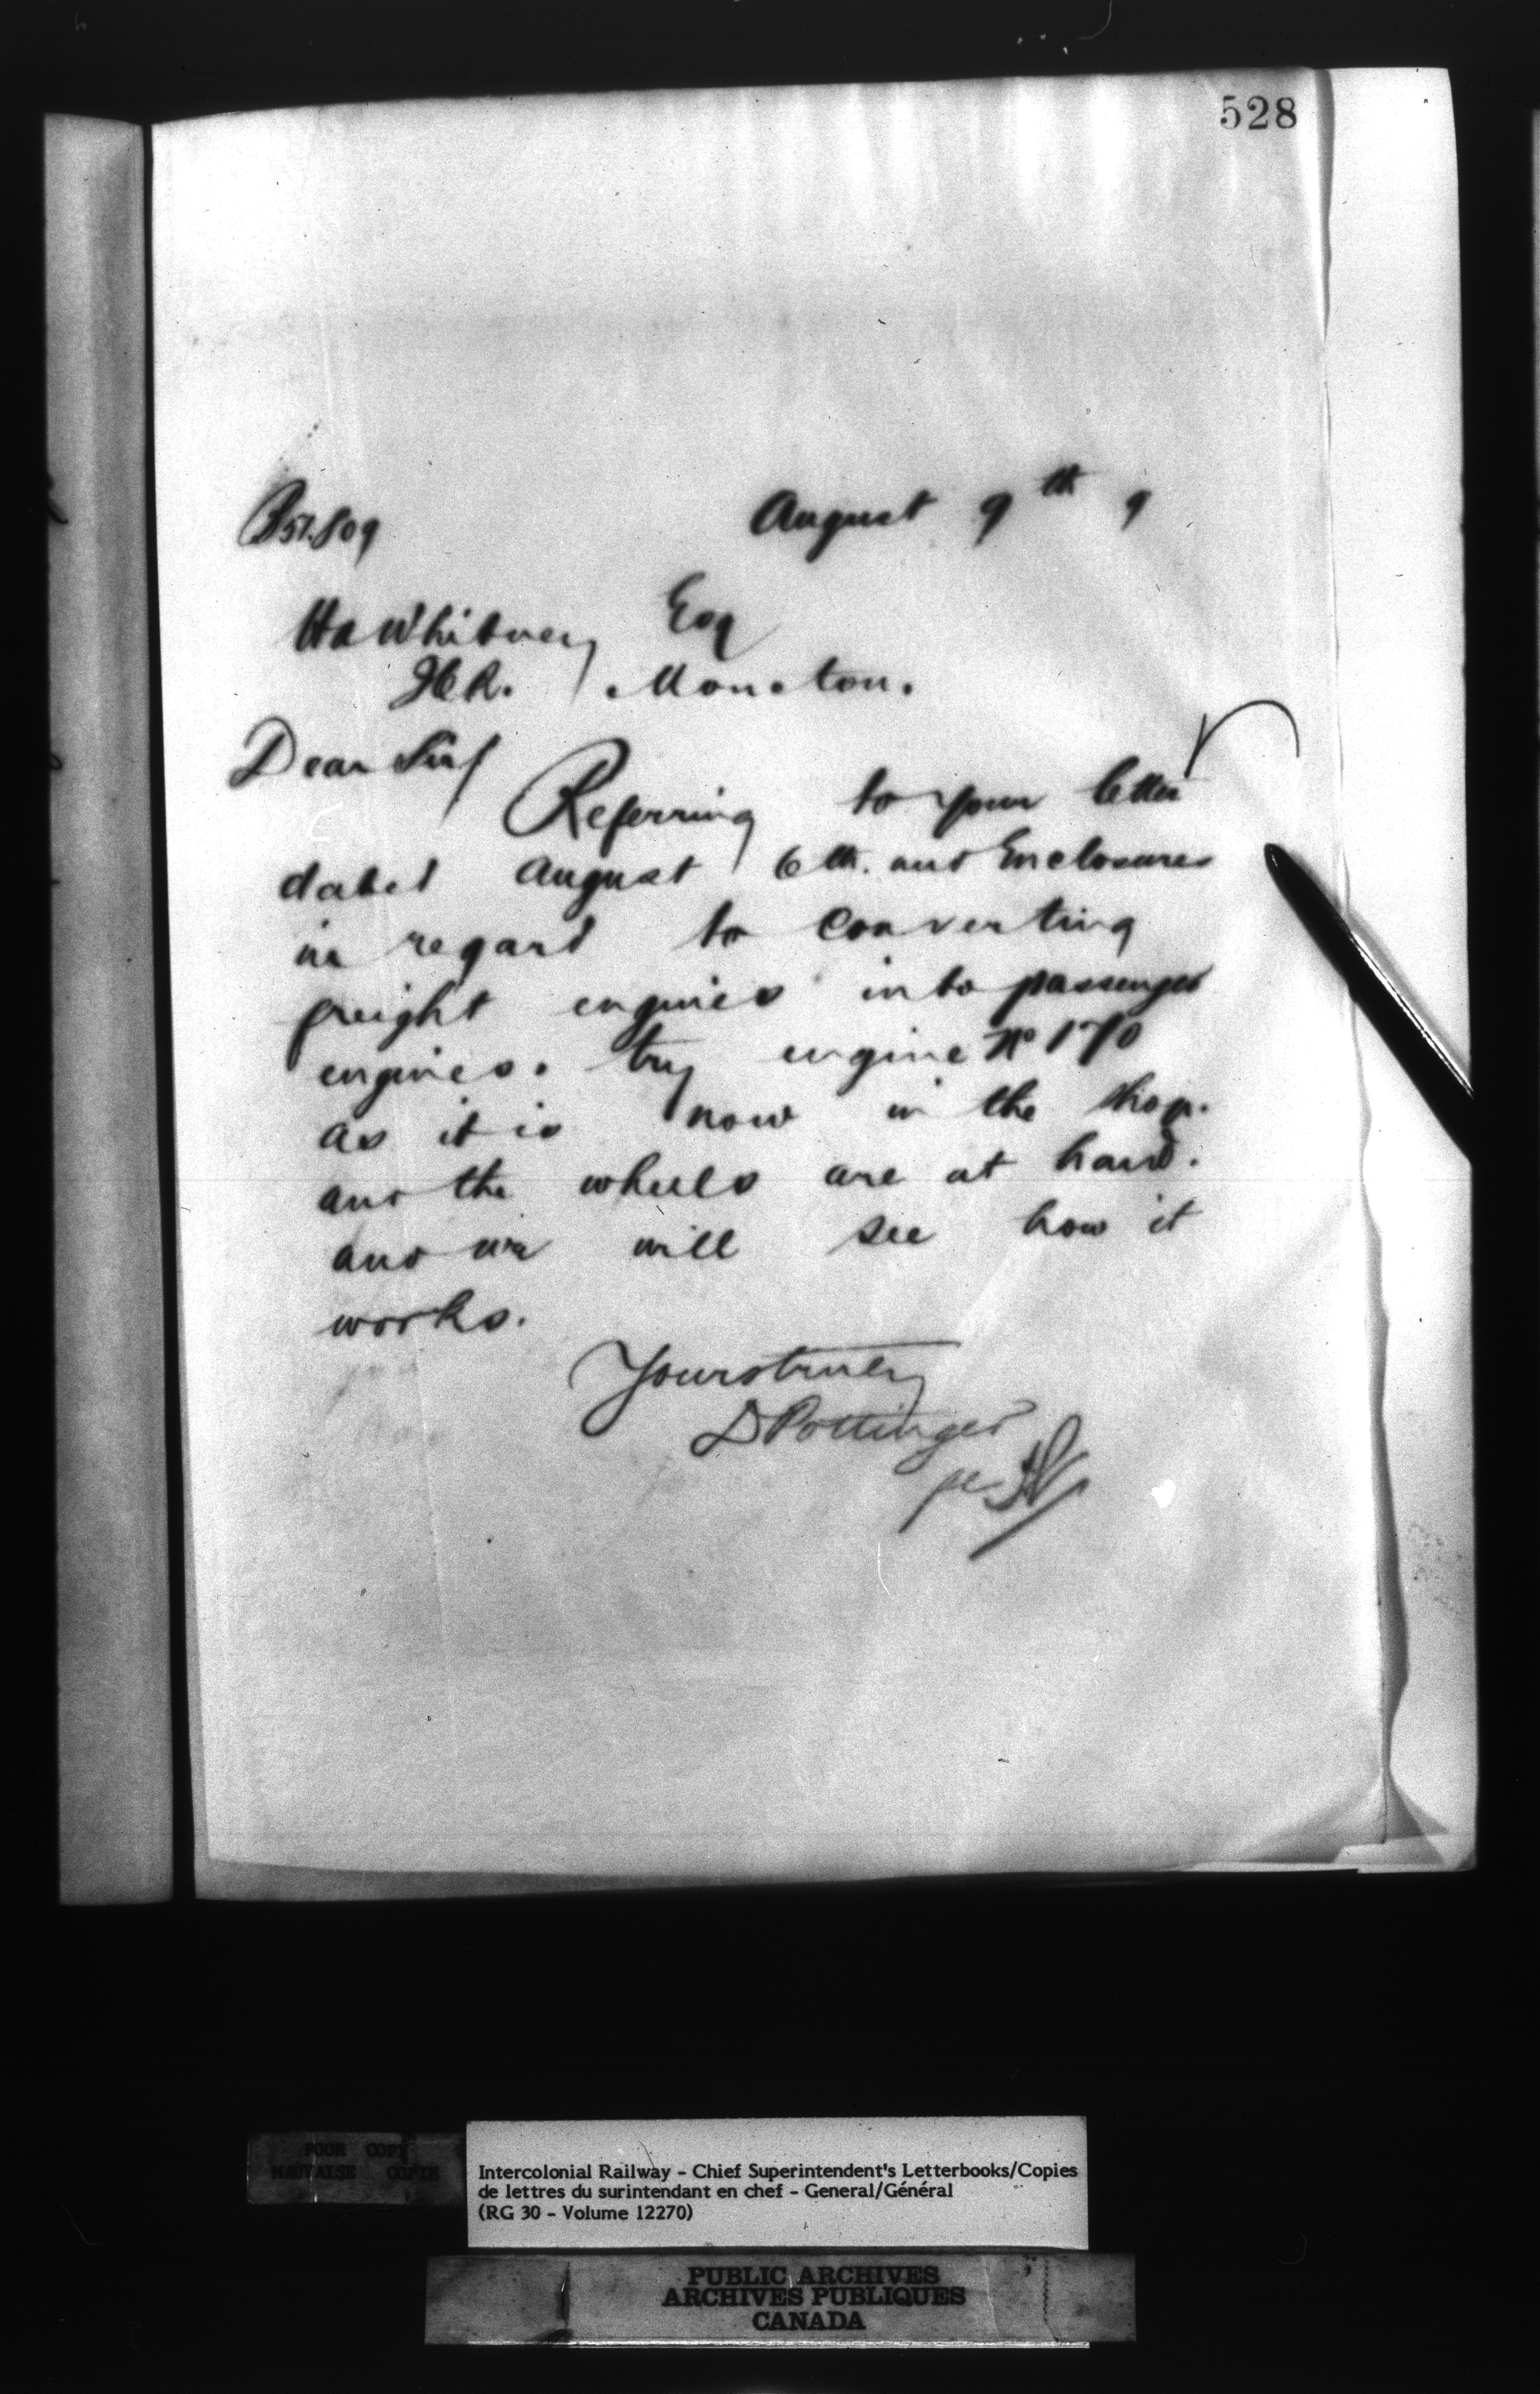 528
August 9th 9
P 51.809
HA Whitney Esq
ICR. Moncton.
Dear Sir/
Referring to your letter
dated August 6th. and Enclosures
in regard to Converting
freight engines into passenger
engines. try engine No 170
as it is now in the shop.
and the wheels are at hand.
and we will see how it
works.
Yours truly
D Pottinger
POOR COPY
MAUVAISE COPIE
Intercolonial Railway - Chief Superintendent's Letterbooks/Copies
de lettres du surintendant en chef - General/Général
(RG 30 - Volume 12270)
PUBLIC ARCHIVES
ARCHIVES PUBLIQUES
CANADA